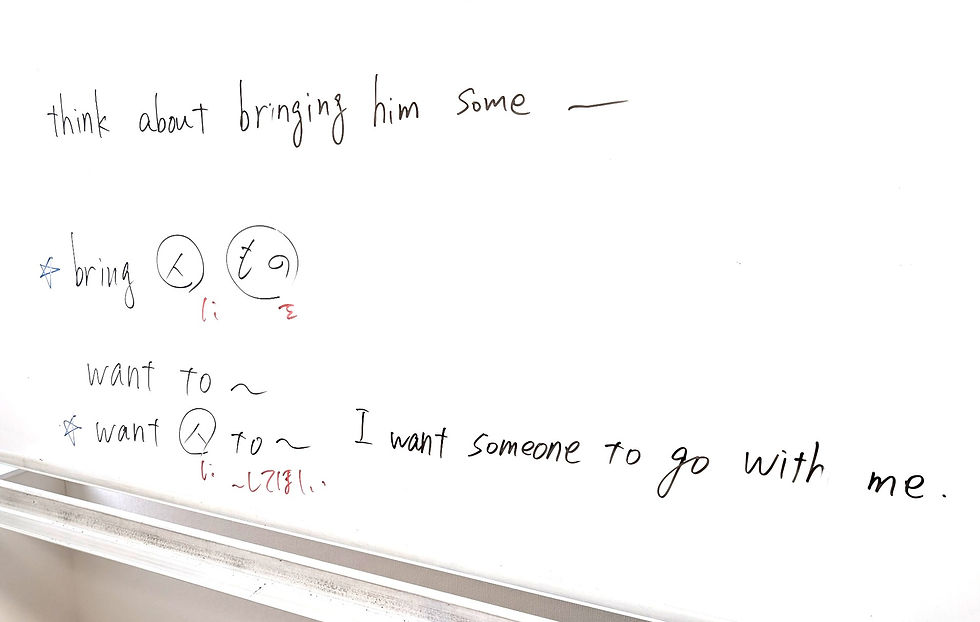 think about bringing him some —
☆ bring 人 もの
に を
want to ~
☆ want 人 to ~ I want someone to go with me.
に ~してほしい